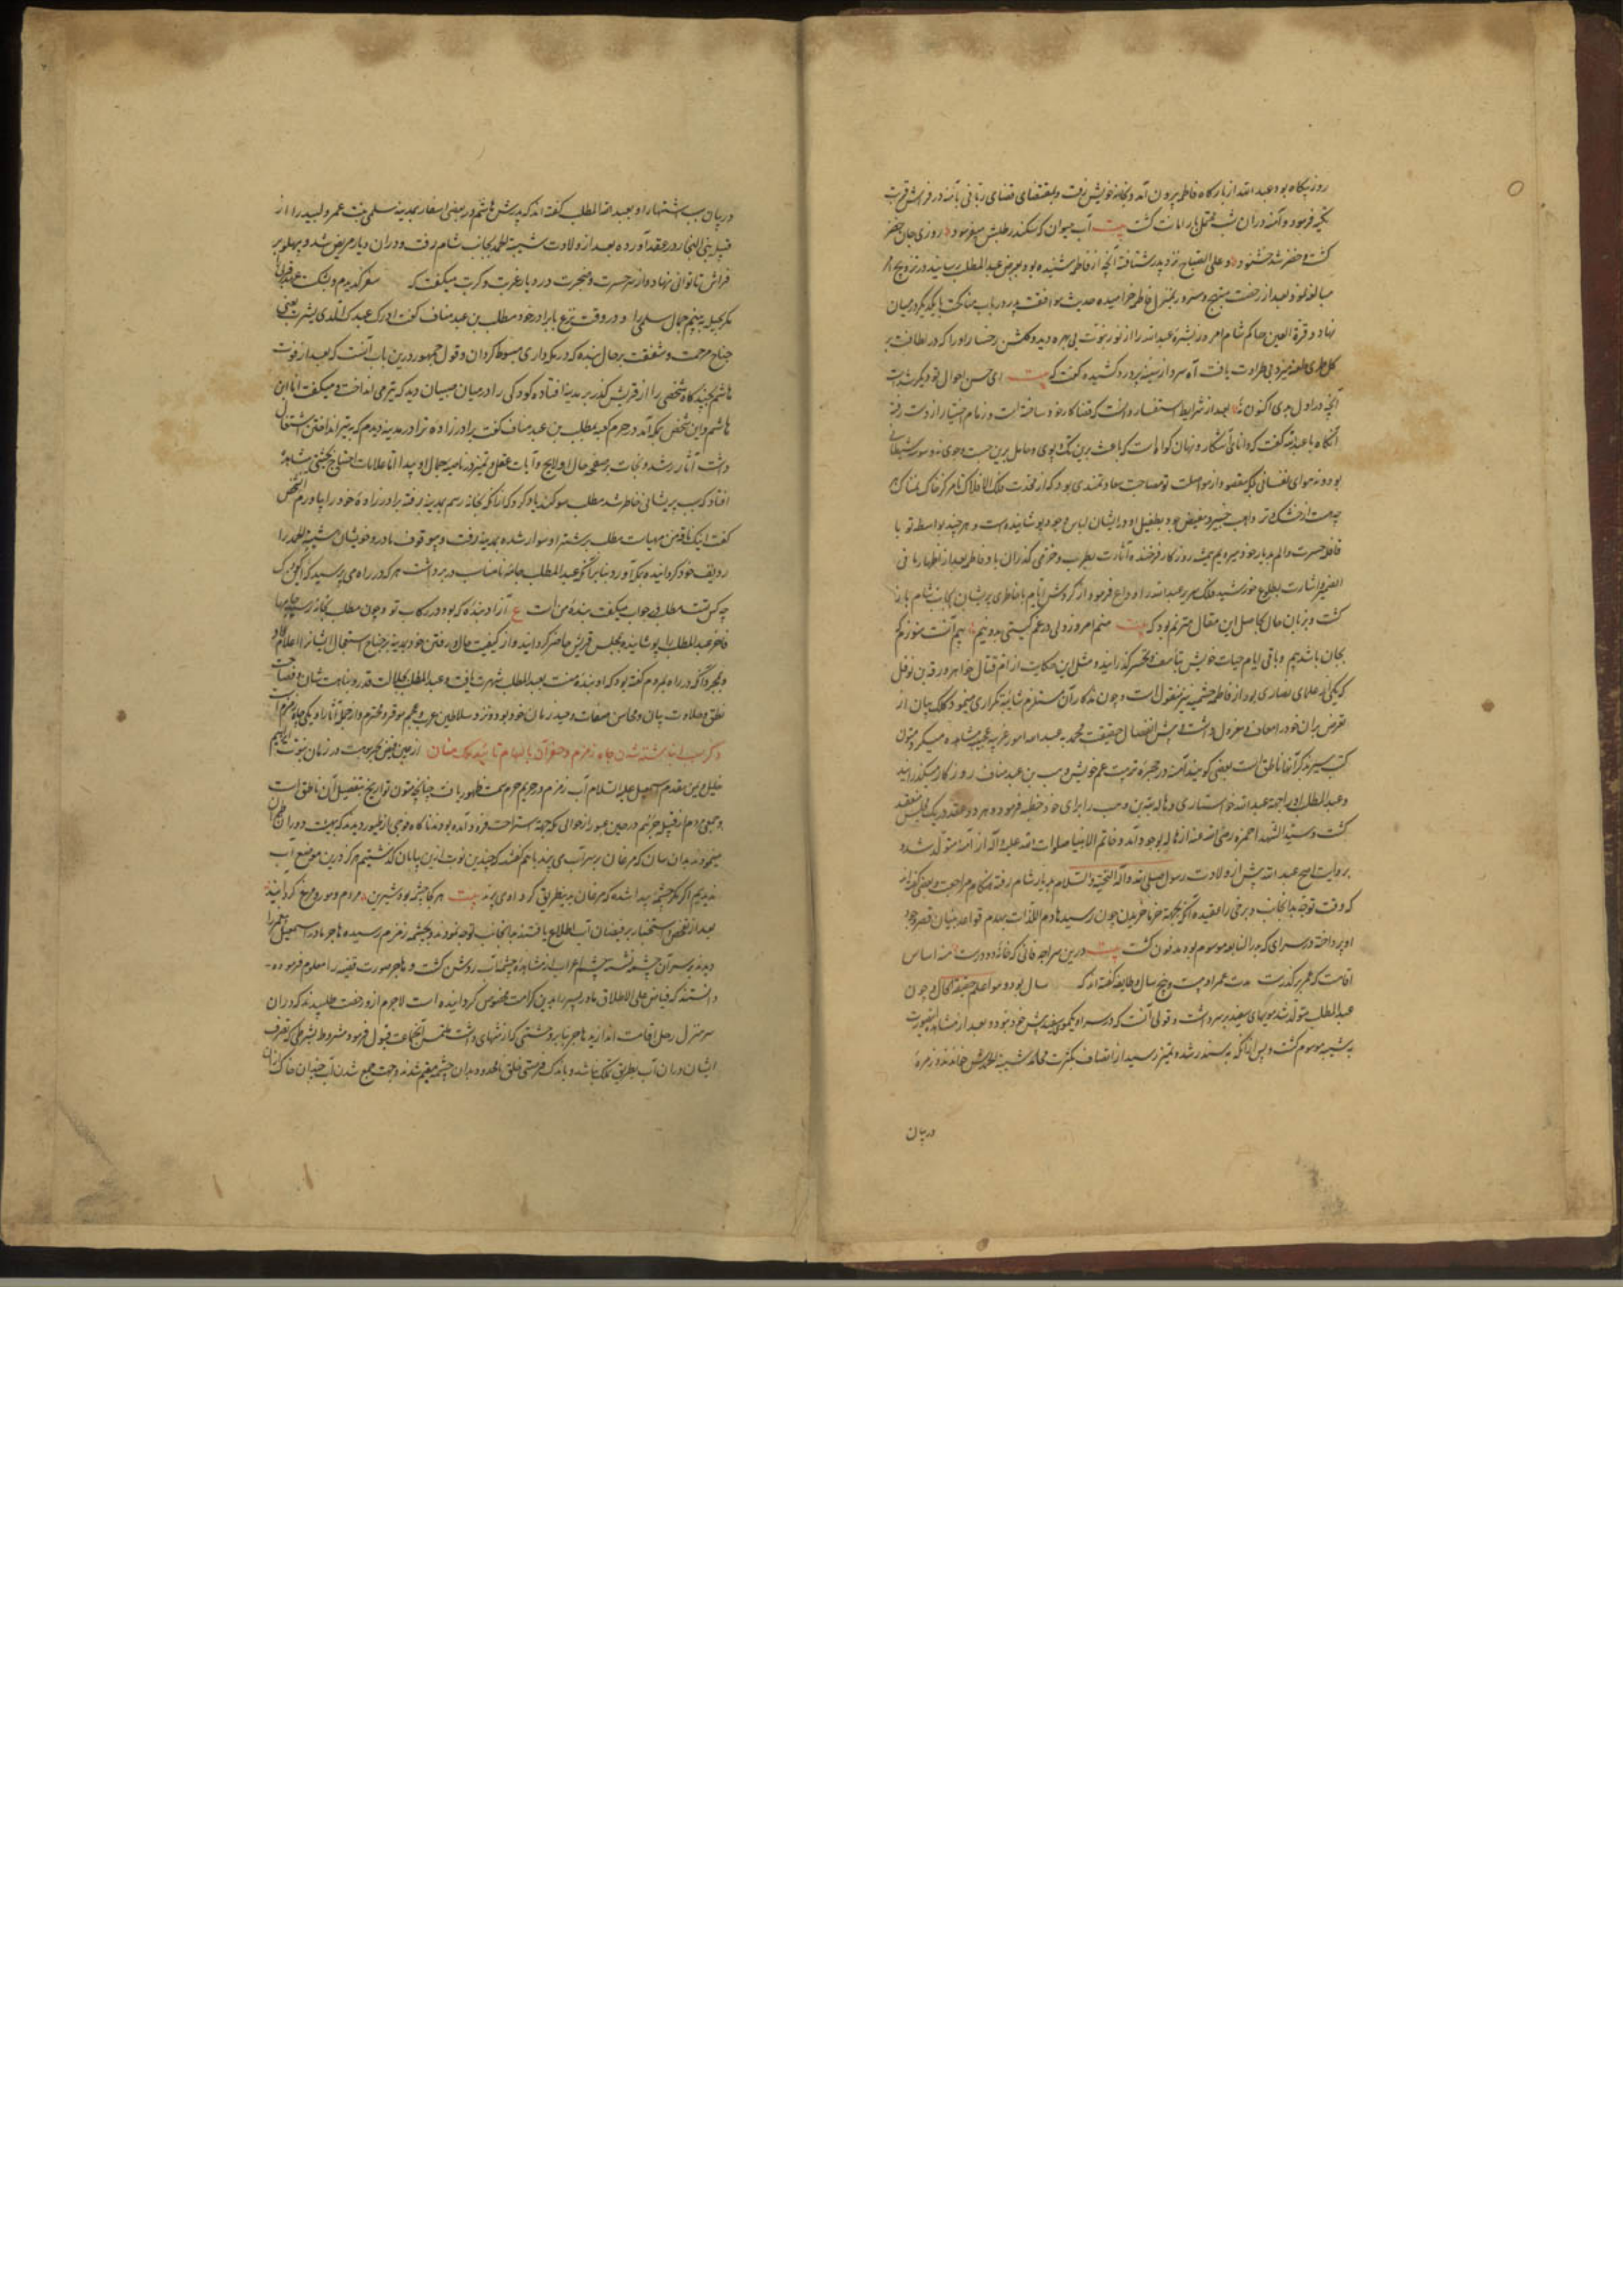 روز پکاه بود عبدالله از بارگاه فاطمه بیرون آمد و بخانه خویش رفت و بمقتضای قضای ربانی با آمنه در فراش قربت
تکیه فرمود و آمنه در آن شب محمل بار امانت گشت بیت آب حیوان که سکندر طلبش میفرمود روزی جان خضر
گشت و خضر شد خشنود و علی الصباح نزد پدر شتافته آنچه از فاطمه شنیده بود بعرض عبدالمطلب رسانید در تزویج او
مبالغه نمود و بعد از رخصت مبتهج و مسرور بمنزل فاطمه خرامیده حدیث موافقت پدر در باب مناکحت با یکدیگر در میان
نهاد و قرة العین حاکم شام امروز بشره عبدالله را از نور نبوت بی بهره دید و گلشن رخسار او را که در لطافت بر
گل طری طعنه میزد بی طراوت یافت آه سرد از سینه پر درد کشیده گفت که بیت ای حسن احوال تو دیگر شده است
آنچه در اول بدی اکنون نه بعد از شرایط استفسار دانست که قضا کار خود ساخته است و زمام اختیار از دست رفته
آنگاه با عبدالله گفت که دانای آشکار و نهان گواه است که باعث برین تک و پوی و حامل برین جست و جوی نه وسوسه شیطانی
بود و نه هوای نفسانی بلکه مقصود از مواصلت تو مصاحبت سعادتمندی بود که از محدب فلک الافلاک تا مرکز خاک نمناک
چه هست از خشک و تر واهب خیر و مفیض جود بطفیل او در ایشان لباس وجود پوشانیده است و هر چند بواسطه تو با
قافله حسرت و الم بدیار خود میرویم همیشه روزگار فرخنده آثارت بطرب و خرمی گذران باد و فاطمه بعد از اظهار ما فی
الضمیر و اشارت بطلوع خورشید فلک سریر عبدالله را وداع فرمود و از گردش ایام با خاطری پریشان بجانب شام باز
گشت و بزبان حال بحاصل این مقال مترنم بود که بیت صنم امروز ولی در غم گیتی بدو نیم بیم آنست هنوزم که
بجان باشد بیم و باقی ایام حیات خویش بتأسف و تحسر گذرانید و مثل این حکایت از ام قتال خواهر ورقة بن نوفل
که یکی از علمای نصاری بود از فاطمه خثعمیه نیز منقولست و چون تذکار آن مستلزم شایبه تکراری مینمود کلک بیان از
تعرض بدان خود را معاف و معزول داشت و پیش از انفصال حقیقت محمدیه عبدالله امور غریبه عجیبه مشاهده میکرد و متون
کتب سیر بذکر آنها ناطق است بعضی گویند آمنه در حجره تربیت عم خویش وهیب بن عبد مناف روزگار میگذرانید
و عبدالمطلب او را بجهة عبدالله خواستاری و هاله بنت وهب را برای خود خطبه فرمود و هر دو عقد در یک مجلس منعقد
گشت و سید الشهدا حمزه رضی الله عنه از هاله بوجود آمد و خاتم الانبیا صلوات الله علیه و آله از آمنه متولد شد و
بروایت اصح عبدالله پیش از ولادت رسول صلی الله و آله التحیة و السلام بدیار شام رفته هنگام مراجعت و بعضی گفته اند
که وقت توجه بدانجانب و برخی را عقیده آنکه بجهة خرما خریدن چون رسید هادم اللذات بهدم قواعد بنیان قصر وجود
او پرداخته در سرای که بدار النابغه موسوم بود مدفون گشت بیت درین سراچه فانی که خانه دو در است منه اساس
اقامت که عمر بر گذر است مدت عمر او بیست و پنج سال و طایفه گفته اند که سال بود و هو اعلم بحقیقة الحال و چون
عبدالمطلب متولد شد موی‌های سفید بر سر داشت و قولی آنست که در سر او یکموی سفید پیش نبود و بعد از مشاهده اینصورت
به شیبه موسوم گشت و پس از آنکه به سن رشد و تمیز رسید از اتصاف بکثرت محامد شیبة الحمدش خواندند و زمره
در بیان
در بیان سبب اشتهار او بعبدالمطلب گفته اند که پدرش هاشم در بعضی اسفار بمدینه سلمی بنت عمرو لبید را از
قبیله بنی النجار در عقد آورده بعد از ولادت شیبة الحمد بجانب شام رفت و در آن دیار مریض شد و پهلو بر
فراش ناتوانی نهاد و از سر حسرت و ضجرت در دیار غربت و کربت میگفت که سفر گزیدم و بشکست عهد قربی را
مگر بحیله ببینم جمال سلمی را و در وقت نزع با برادر خود مطلب بن عبد مناف گفت ادرک عبدک الذی بیثرب یعنی
جناح مرحمت و شفقت بر حال بنده که در یثرب داری مبسوط گردان و قول جمهور درین باب آنست که بعد از فوت
هاشم بچند گاه شخصی را از قریش گذر بر مدینه افتاده کودکی را در میان صبیان دید که تیر می انداخت و میگفت انا ابن
هاشم و این شخص بمکه آمد در حرم کعبه بمطلب بن عبد مناف گفت برادرزاده ترا در مدینه دیدم که بتیر انداختن اشتغال
داشت آثار رشد و نجابت بر صفحه حال او لایح و آیات عقل و تمیز در ناصیه جمال او پیدا اما علامات احتیاج بحیثیتی مشاهده
افتاد که سبب پریشانی خاطر شد مطلب سوگند یاد کرد که از آنکه بخانه رسم بمدینه رفته برادرزاده خود را بیاورم آن شخص
گفت اینک ناقه من مهیاست مطلب بر شتر او سوار شده بمدینه رفت و بی وقوف مادر و خویشان شیبة الحمد را
ردیف خود گردانیده بمکه آورد و بنا بر آنکه عبدالمطلب جامه نامناسب در بر داشت هر که در راه می پرسید که این کودک
چه کس تست مطلب در جواب میگفت بنده منست ع آزاد بنده که بود در رکاب تو و چون مطلب بخانه رسید جامها
فاخر عبدالمطلب را پوشانیده بمجلس قریش حاضر گردانید و از کیفیت حال و رفتن خود بمدینه بر جناح استعجال ایشان را اعلام داد
و بمجرد آنکه در راه بمردم گفته بود که او بنده منست بعبدالمطلب شهرت یافت و عبدالمطلب بجلالت قدر و نباهت شان و فصاحت
نطق و حلاوت بیان و محاسن صفات وحید زمان خود بود و نزد سلاطین عرب و عجم موقر و محترم و از جمله آثار او یکی چاه زمزم است
ذکر سبب انباشته شدن چاه زمزم و حفر آن بالهام تایید ملک منان از معین فیض مجرب در زمان نبوت ابراهیم
خلیل و یمن مقدم اسمعیل علیه السلام آب زمزم در حریم حرم سمت ظهور یافت چنانچه متون تواریخ بتفصیل آن ناطق است
و جمعی مردم از قبیله جرهم در حین عبور از حوالی مکه بجهة استراحت فرود آمده بودند ناگاه فوجی از طیور دیدند که بهیئت دوران طیران
مینمودند بدان سان که مرغان بر سر آب می پرند با هم گفتند که چندین نوبت ازین بیابان گذشتیم هرگز درین موضع آب
ندیدیم اگر نه چشمه پیدا شده که مرغان بدینطریق گرد او می پرند بیت هر کجا چشمه بود شیرین مردم و مور و مرغ گرد آیند
بعد از تفحص و استخبار بر فیضان آب اطلاع یافتند بدانجانب توجه نمودند و بچشمه زمزم رسیده هاجر مادر اسمعیل را
دیدند بر سر آن چشمه نشسته چشم اعراب از مشاهده چشمه آب روشن گشت و هاجر صورت قضیه را معلوم فرموده
دانستند که فیاض علی الاطلاق مادر و پسر را بدین کرامت مخصوص گردانیده است لاجرم ازو رخصت طلبیدند که در آن
سر منزل رحل اقامت اندازند هاجر بنا بر وحشتی که از تنهایی داشت ملتمس آنجماعت قبول فرمود مشروط بشرطی که تصرف
ایشان در آن آب بطریق تملک نباشد و باندک فرصتی خلق نامعدود بدان چشمه مقیم شدند و جهت جمع شدن آب چندان خاک